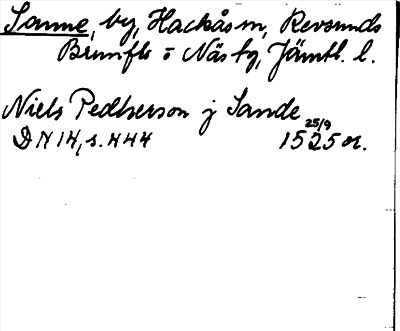 Sanne, by, Hackås sn, Revsunds
Brunflo o Näs tg, Jämtl. l.
Niels Pedherson j Sande
25/9
DN 14, s. 444 1525 or.